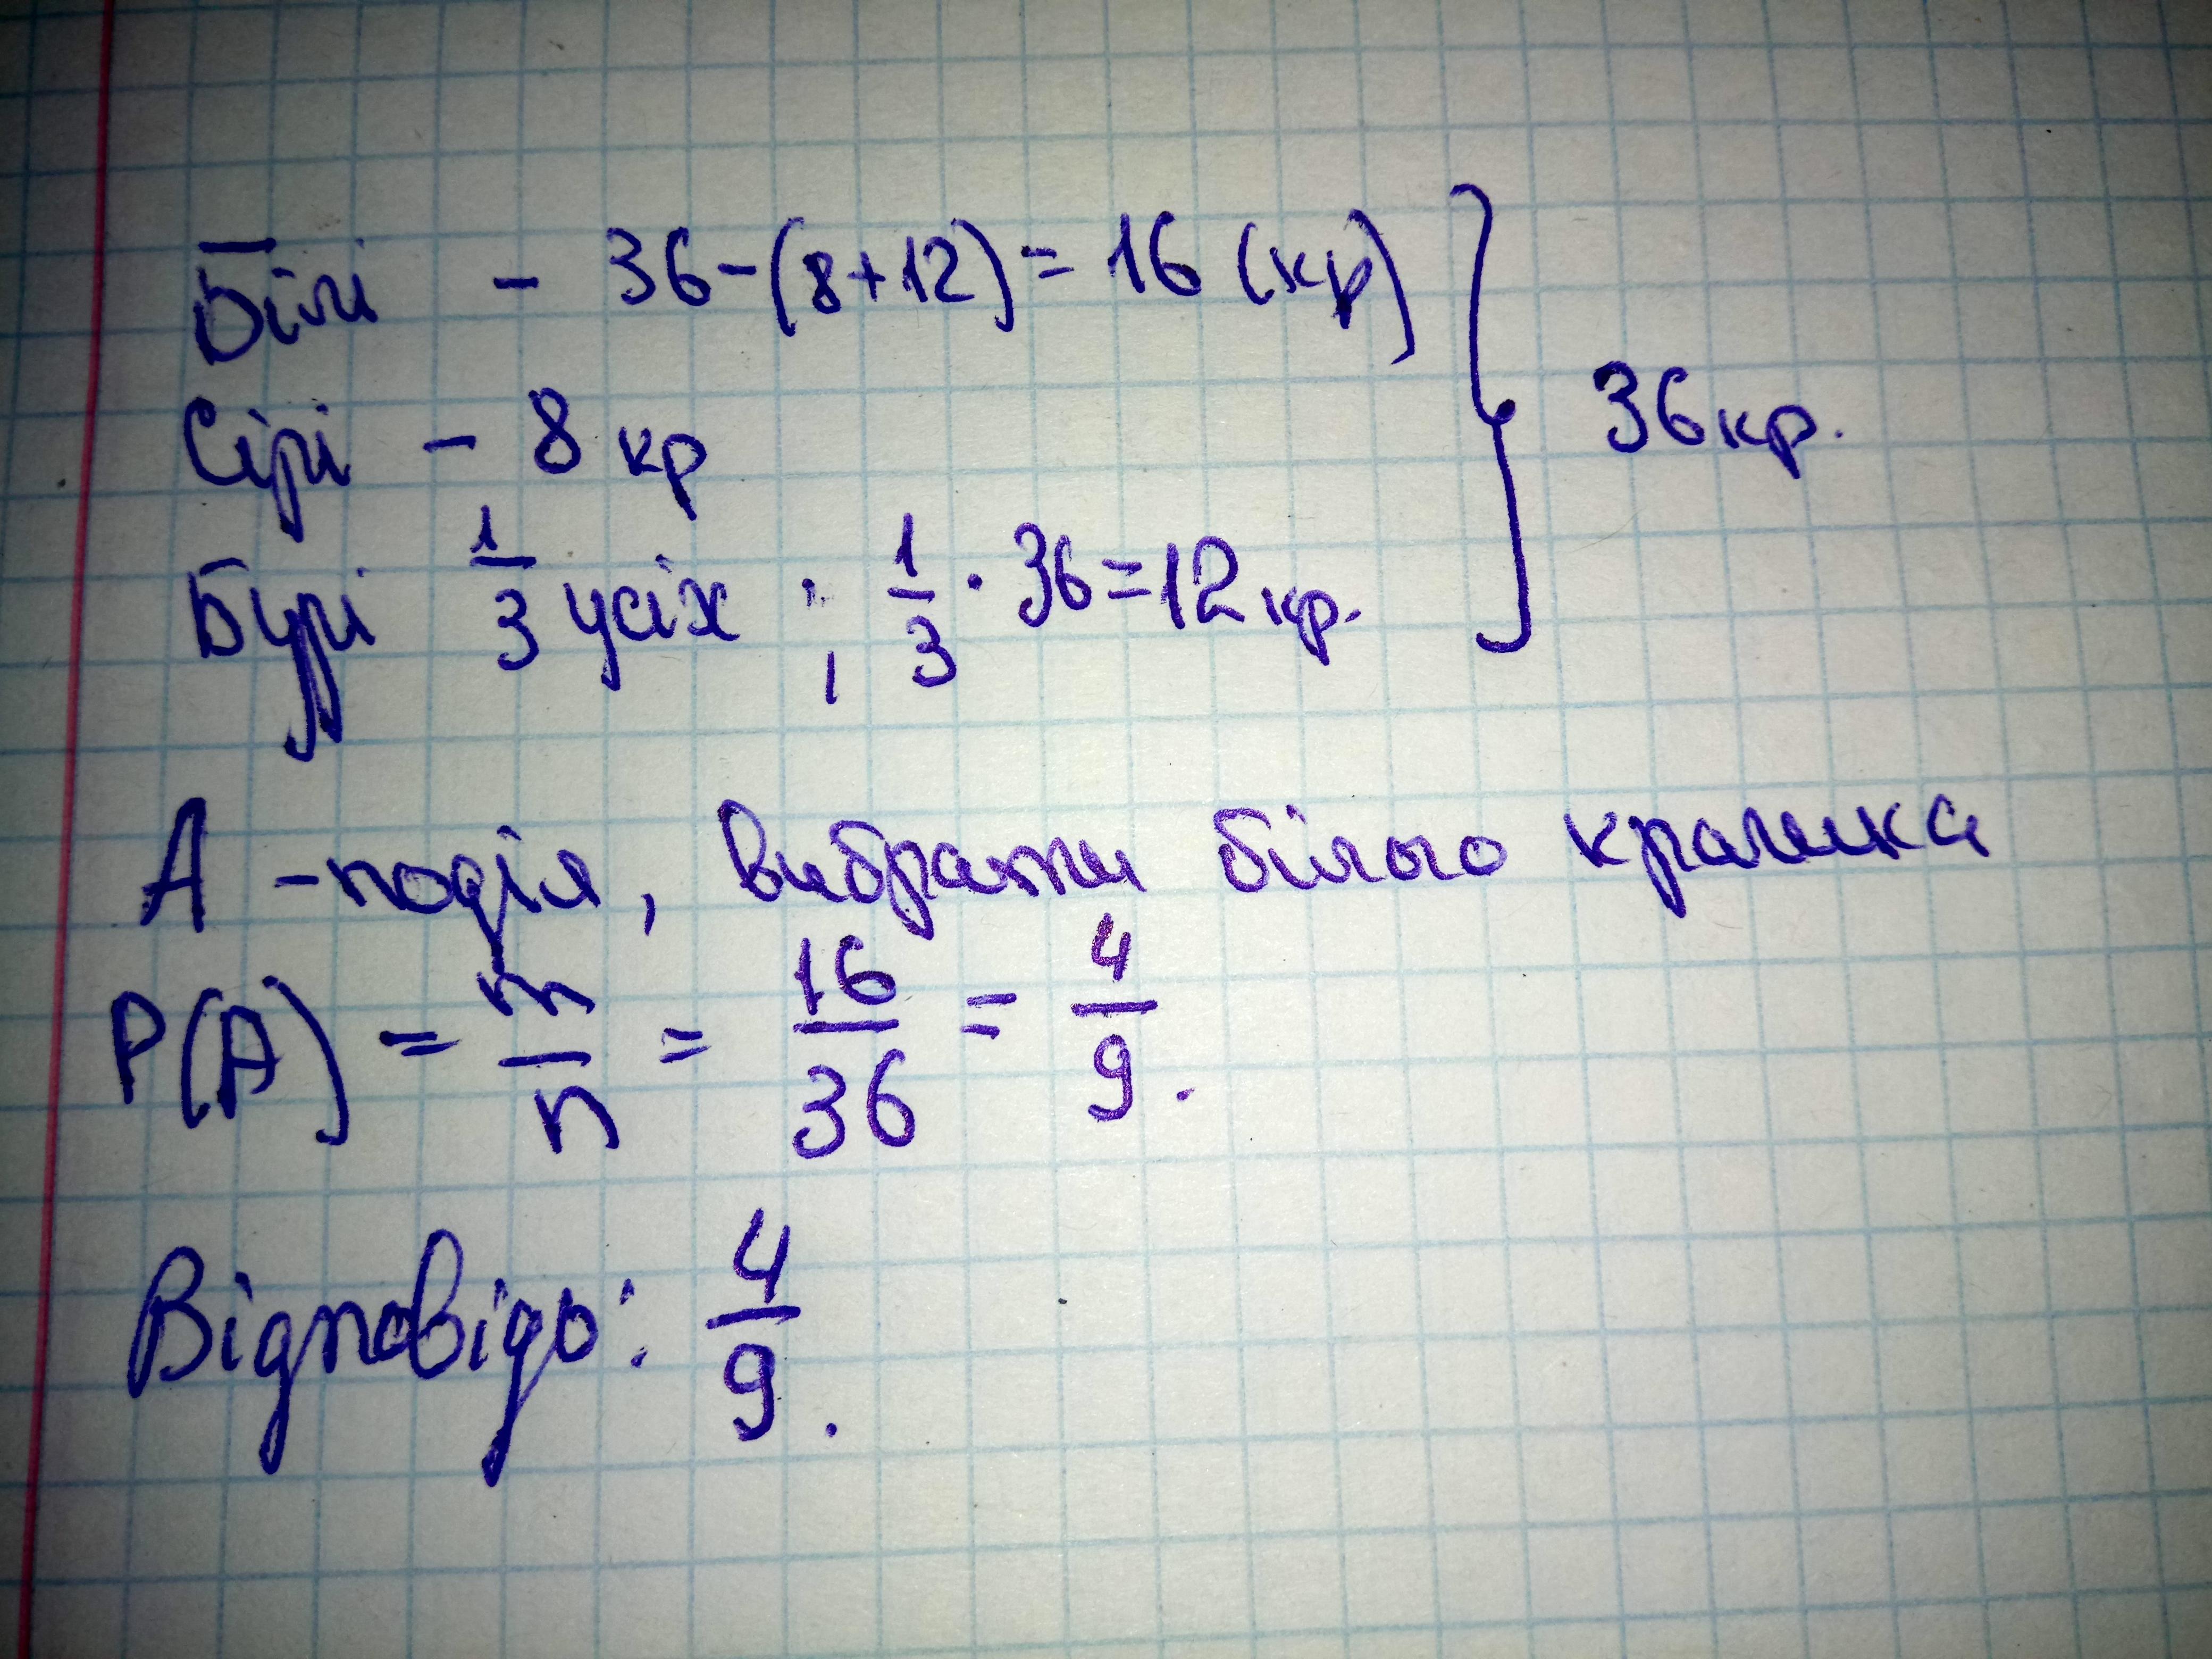 Білі - 36-(8+12)=16 (кр)
Сірі - 8 кр
36 кр.
Бурі 1/3 усіх ; 1/3 · 36=12 кр.
A - подія, вибрати білого кролика
P(A) = m/n = 16/36 = 4/9.
Відповідь: 4/9.